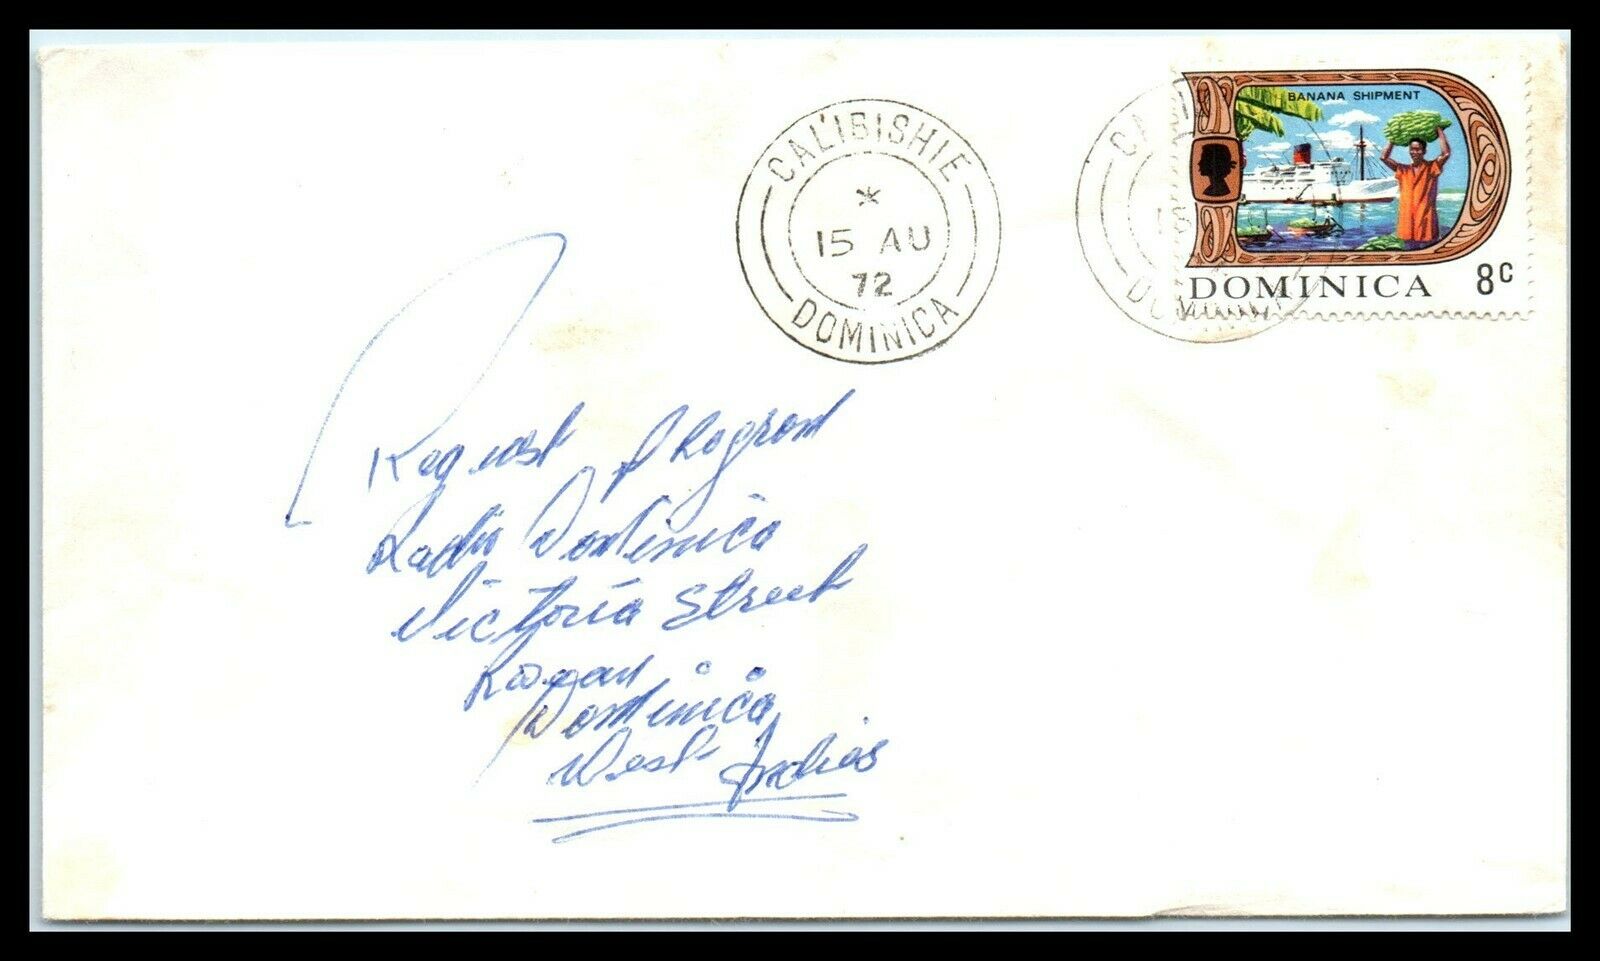 CALIBISHIE
15 AU
72
DOMINICA
BANANA SHIPMENT
DOMINICA 8c
Request Program
Radio Dominica
Victoria Street
Roseau
Dominica
West Indies